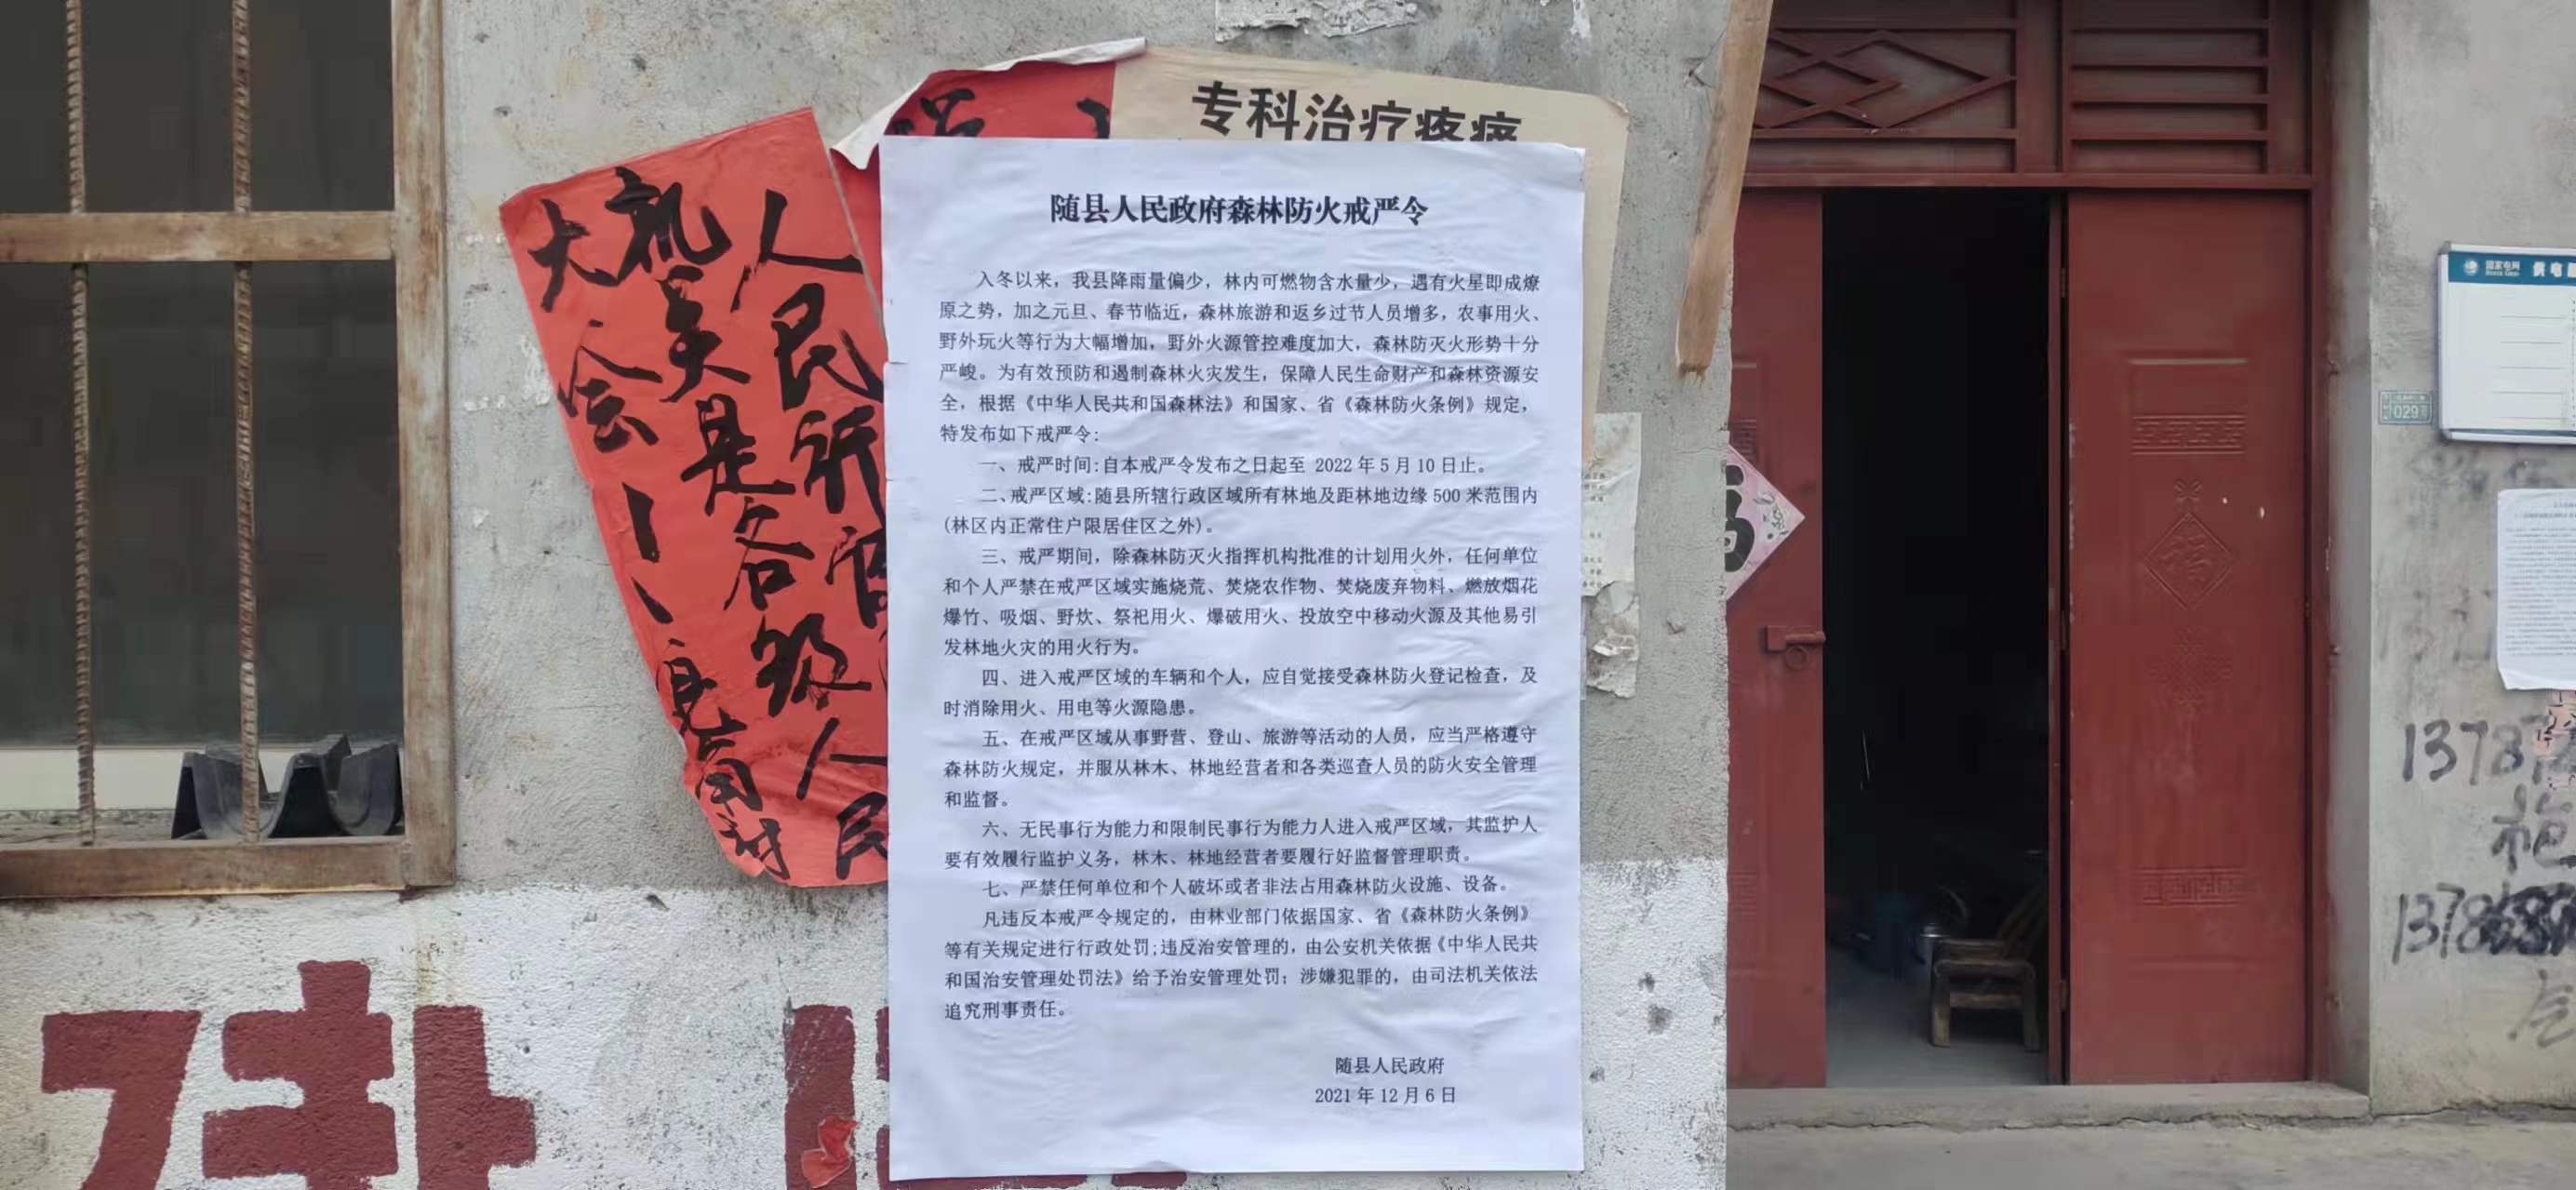 专科治疗疼痛
大会
机关是各级人民
人民行
随县人民政府森林防火戒严令
入冬以来，我县降雨量偏少，林内可燃物含水量少，遇有火星即成燎
原之势，加之元旦、春节临近，森林旅游和返乡过节人员增多，农事用火、
野外玩火等行为大幅增加，野外火源管控难度加大，森林防灭火形势十分
严峻。为有效预防和遏制森林火灾发生，保障人民生命财产和森林资源安
全，根据《中华人民共和国森林法》和国家、省《森林防火条例》规定，
特发布如下戒严令:
一、戒严时间:自本戒严令发布之日起至 2022 年 5 月 10 日止。
二、戒严区域:随县所辖行政区域所有林地及距林地边缘 500 米范围内
(林区内正常住户限居住区之外)。
三、戒严期间，除森林防灭火指挥机构批准的计划用火外，任何单位
和个人严禁在戒严区域实施烧荒、焚烧农作物、焚烧废弃物料、燃放烟花
爆竹、吸烟、野炊、祭祀用火、爆破用火、投放空中移动火源及其他易引
发林地火灾的用火行为。
四、进入戒严区域的车辆和个人，应自觉接受森林防火登记检查，及
时消除用火、用电等火源隐患。
五、在戒严区域从事野营、登山、旅游等活动的人员，应当严格遵守
森林防火规定，并服从林木、林地经营者和各类巡查人员的防火安全管理
和监督。
六、无民事行为能力和限制民事行为能力人进入戒严区域，其监护人
要有效履行监护义务，林木、林地经营者要履行好监督管理职责。
七、严禁任何单位和个人破坏或者非法占用森林防火设施、设备。
凡违反本戒严令规定的，由林业部门依据国家、省《森林防火条例》
等有关规定进行行政处罚;违反治安管理的，由公安机关依据《中华人民共
和国治安管理处罚法》给予治安管理处罚；涉嫌犯罪的，由司法机关依法
追究刑事责任。
随县人民政府
2021 年 12 月 6 日
国家电网
供电
029
福